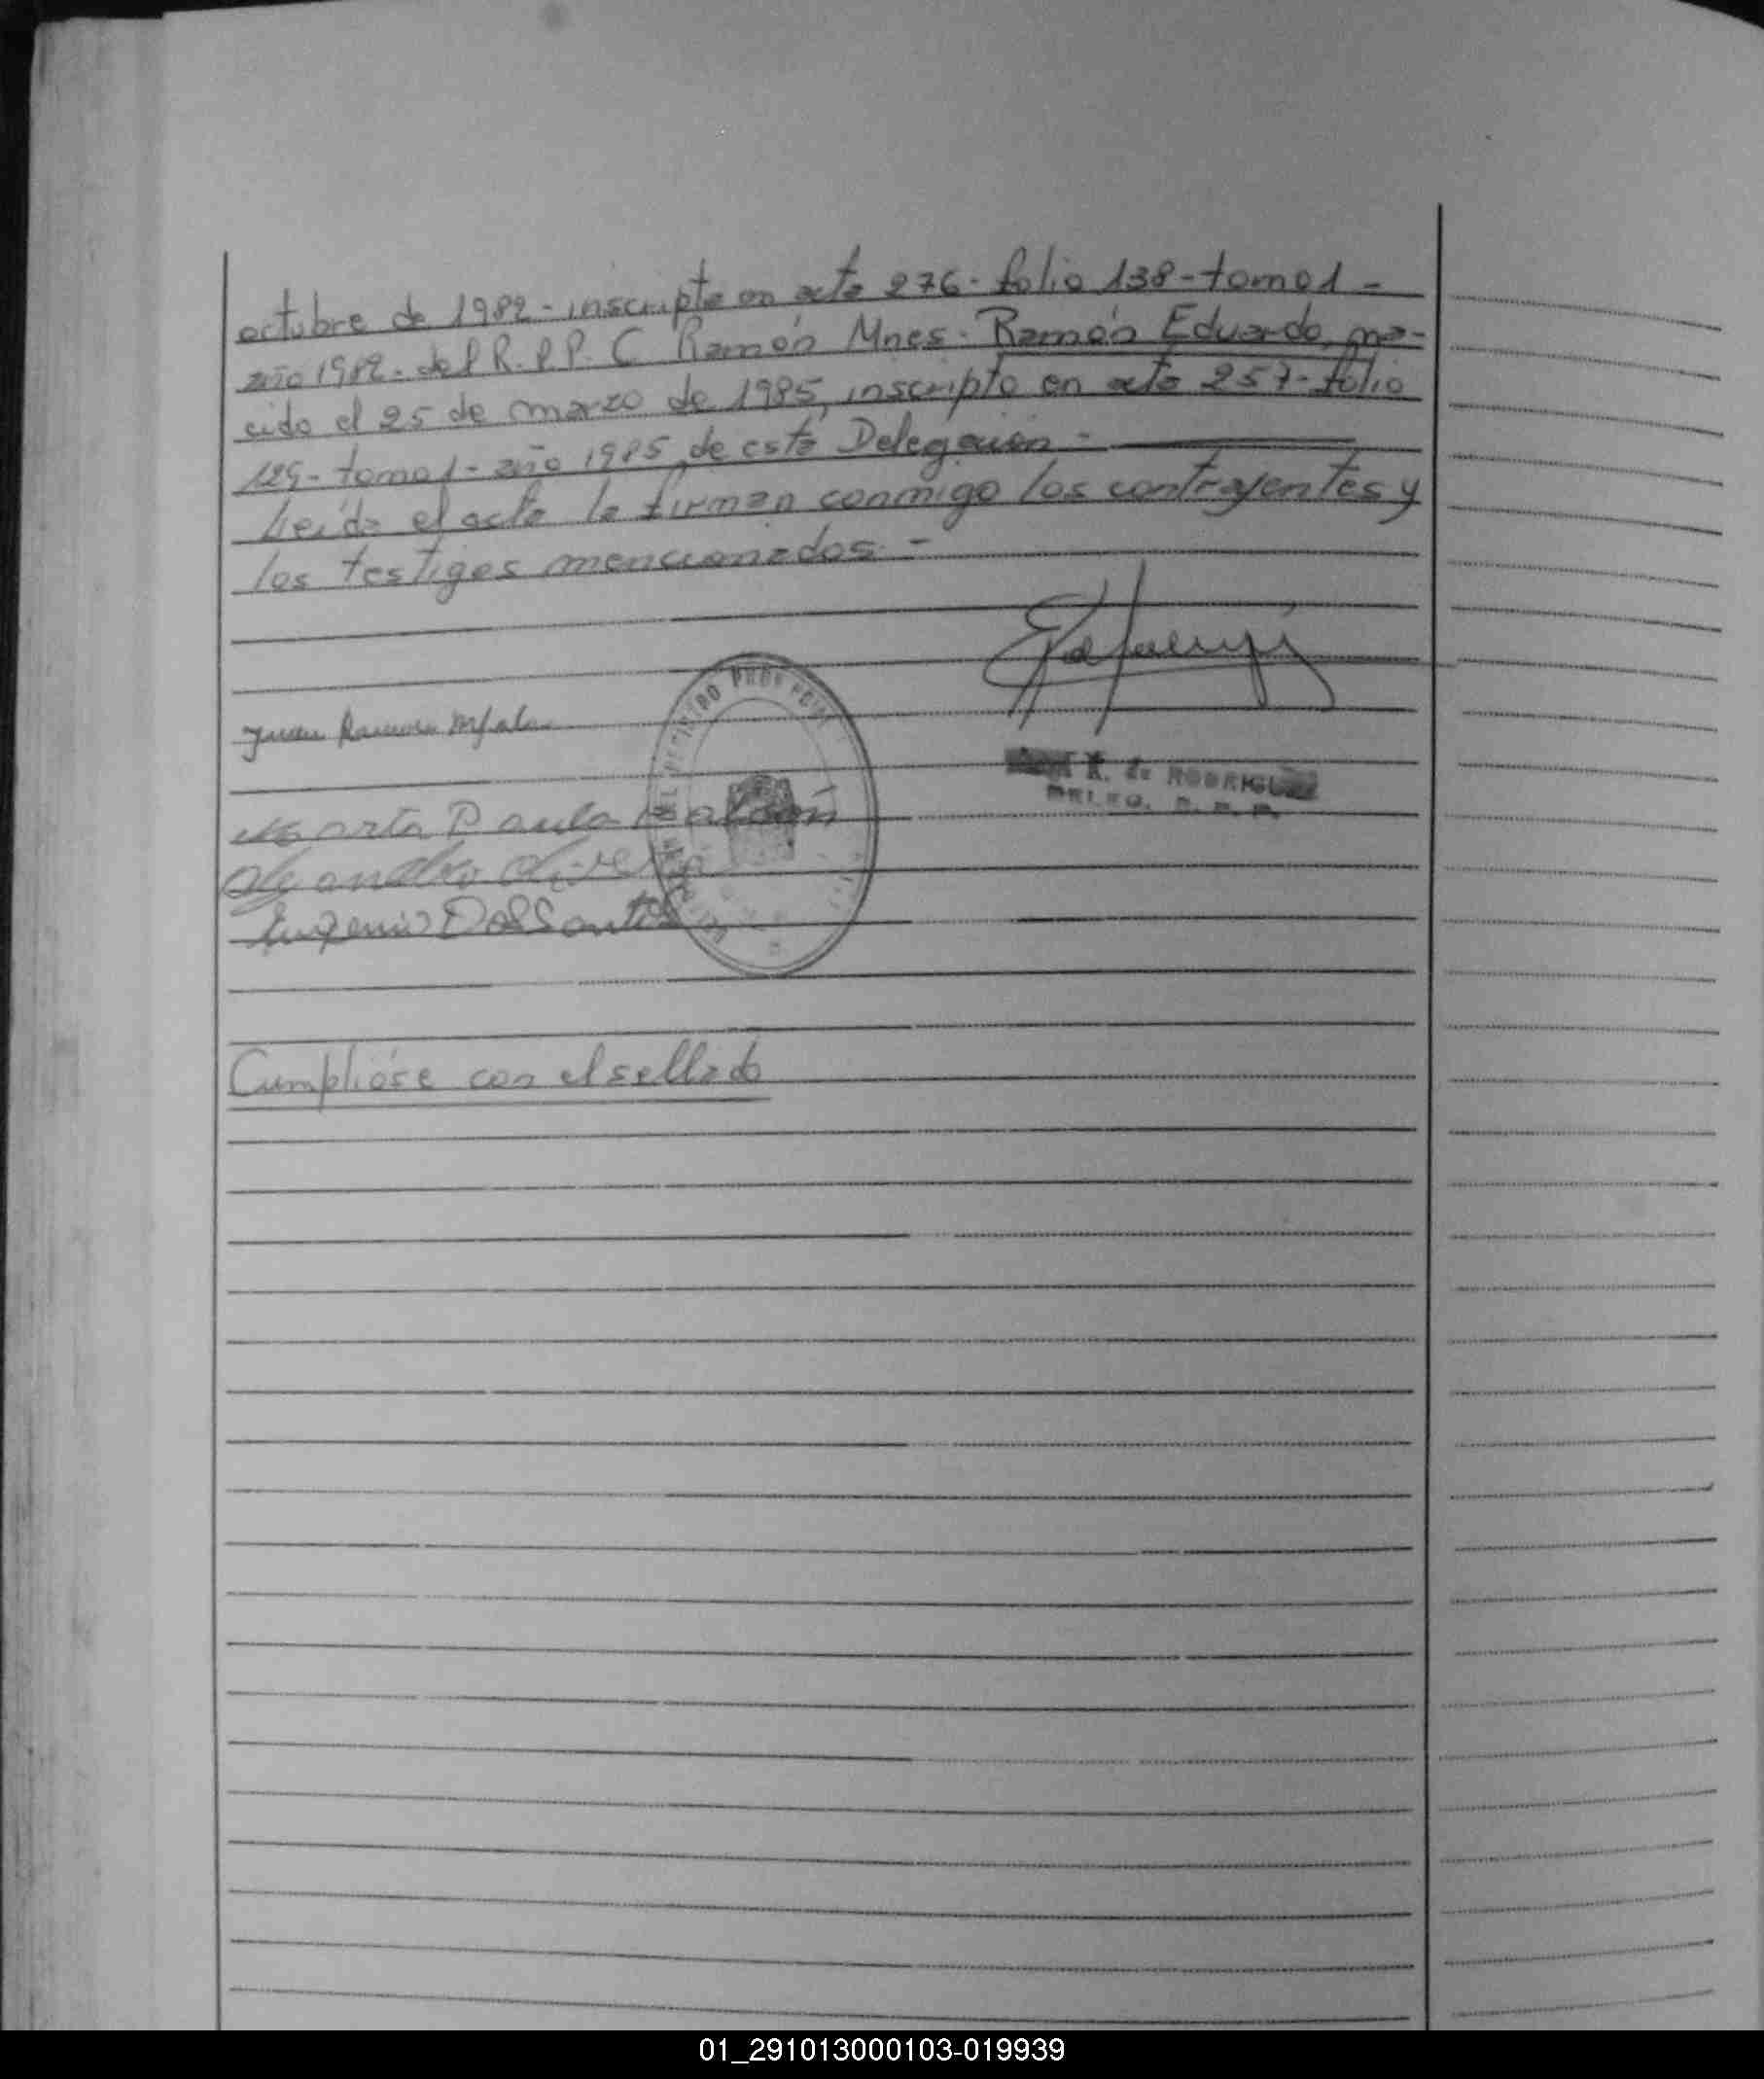 octubre de 1982 - inscripto en acta 276 - folio 138 - tomo 1 -
año 1982 - del R.P.P. C Ramón Mnes - Ramón Eduardo, na-
cido el 25 de marzo de 1985, inscripto en acta 257 - folio
129 - tomo 1 - año 1985 de esta Delegación -
Leída el acta la firman conmigo los contrayentes y
los testigos mencionados -
Juan Ramón
REGISTRO PROVINCIAL
R. de RODRIGUEZ
DELEG. R. P. P.
Marta Paula
Alejandro Olivera
Eugenio Dos Santos
Cumplióse con el sellado
01_291013000103-019939